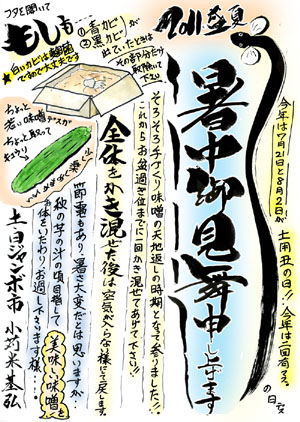 2011盛夏
今年は7月21日と8月2日が
土用丑の日!! 今年は二回有る
の日
暑中御見舞申し上げます
フタを開いて
もしも…
①青カビが
②黒カビが
出ていたときは
その部分だけ
取除いて
下さい
★白いカビは
ですので大丈夫です
そろそろ手づくり味噌の天地返しの時期となって参りました!!
これからお盆過ぎ位までに一回かき混ぜてあげて下さい!!
全体をかき混ぜた後は空気が入らな様にて戻します。
ちょっと
若いお味噌ですが
ちょっと取って
きゅうり
節電もあり暑さ大変だとは思いますが
秋の芋の汁の頃目指して美味しい味噌を
お体をいたわりお過し下さいます様…
土日ジャンボ市 小苅米基弘